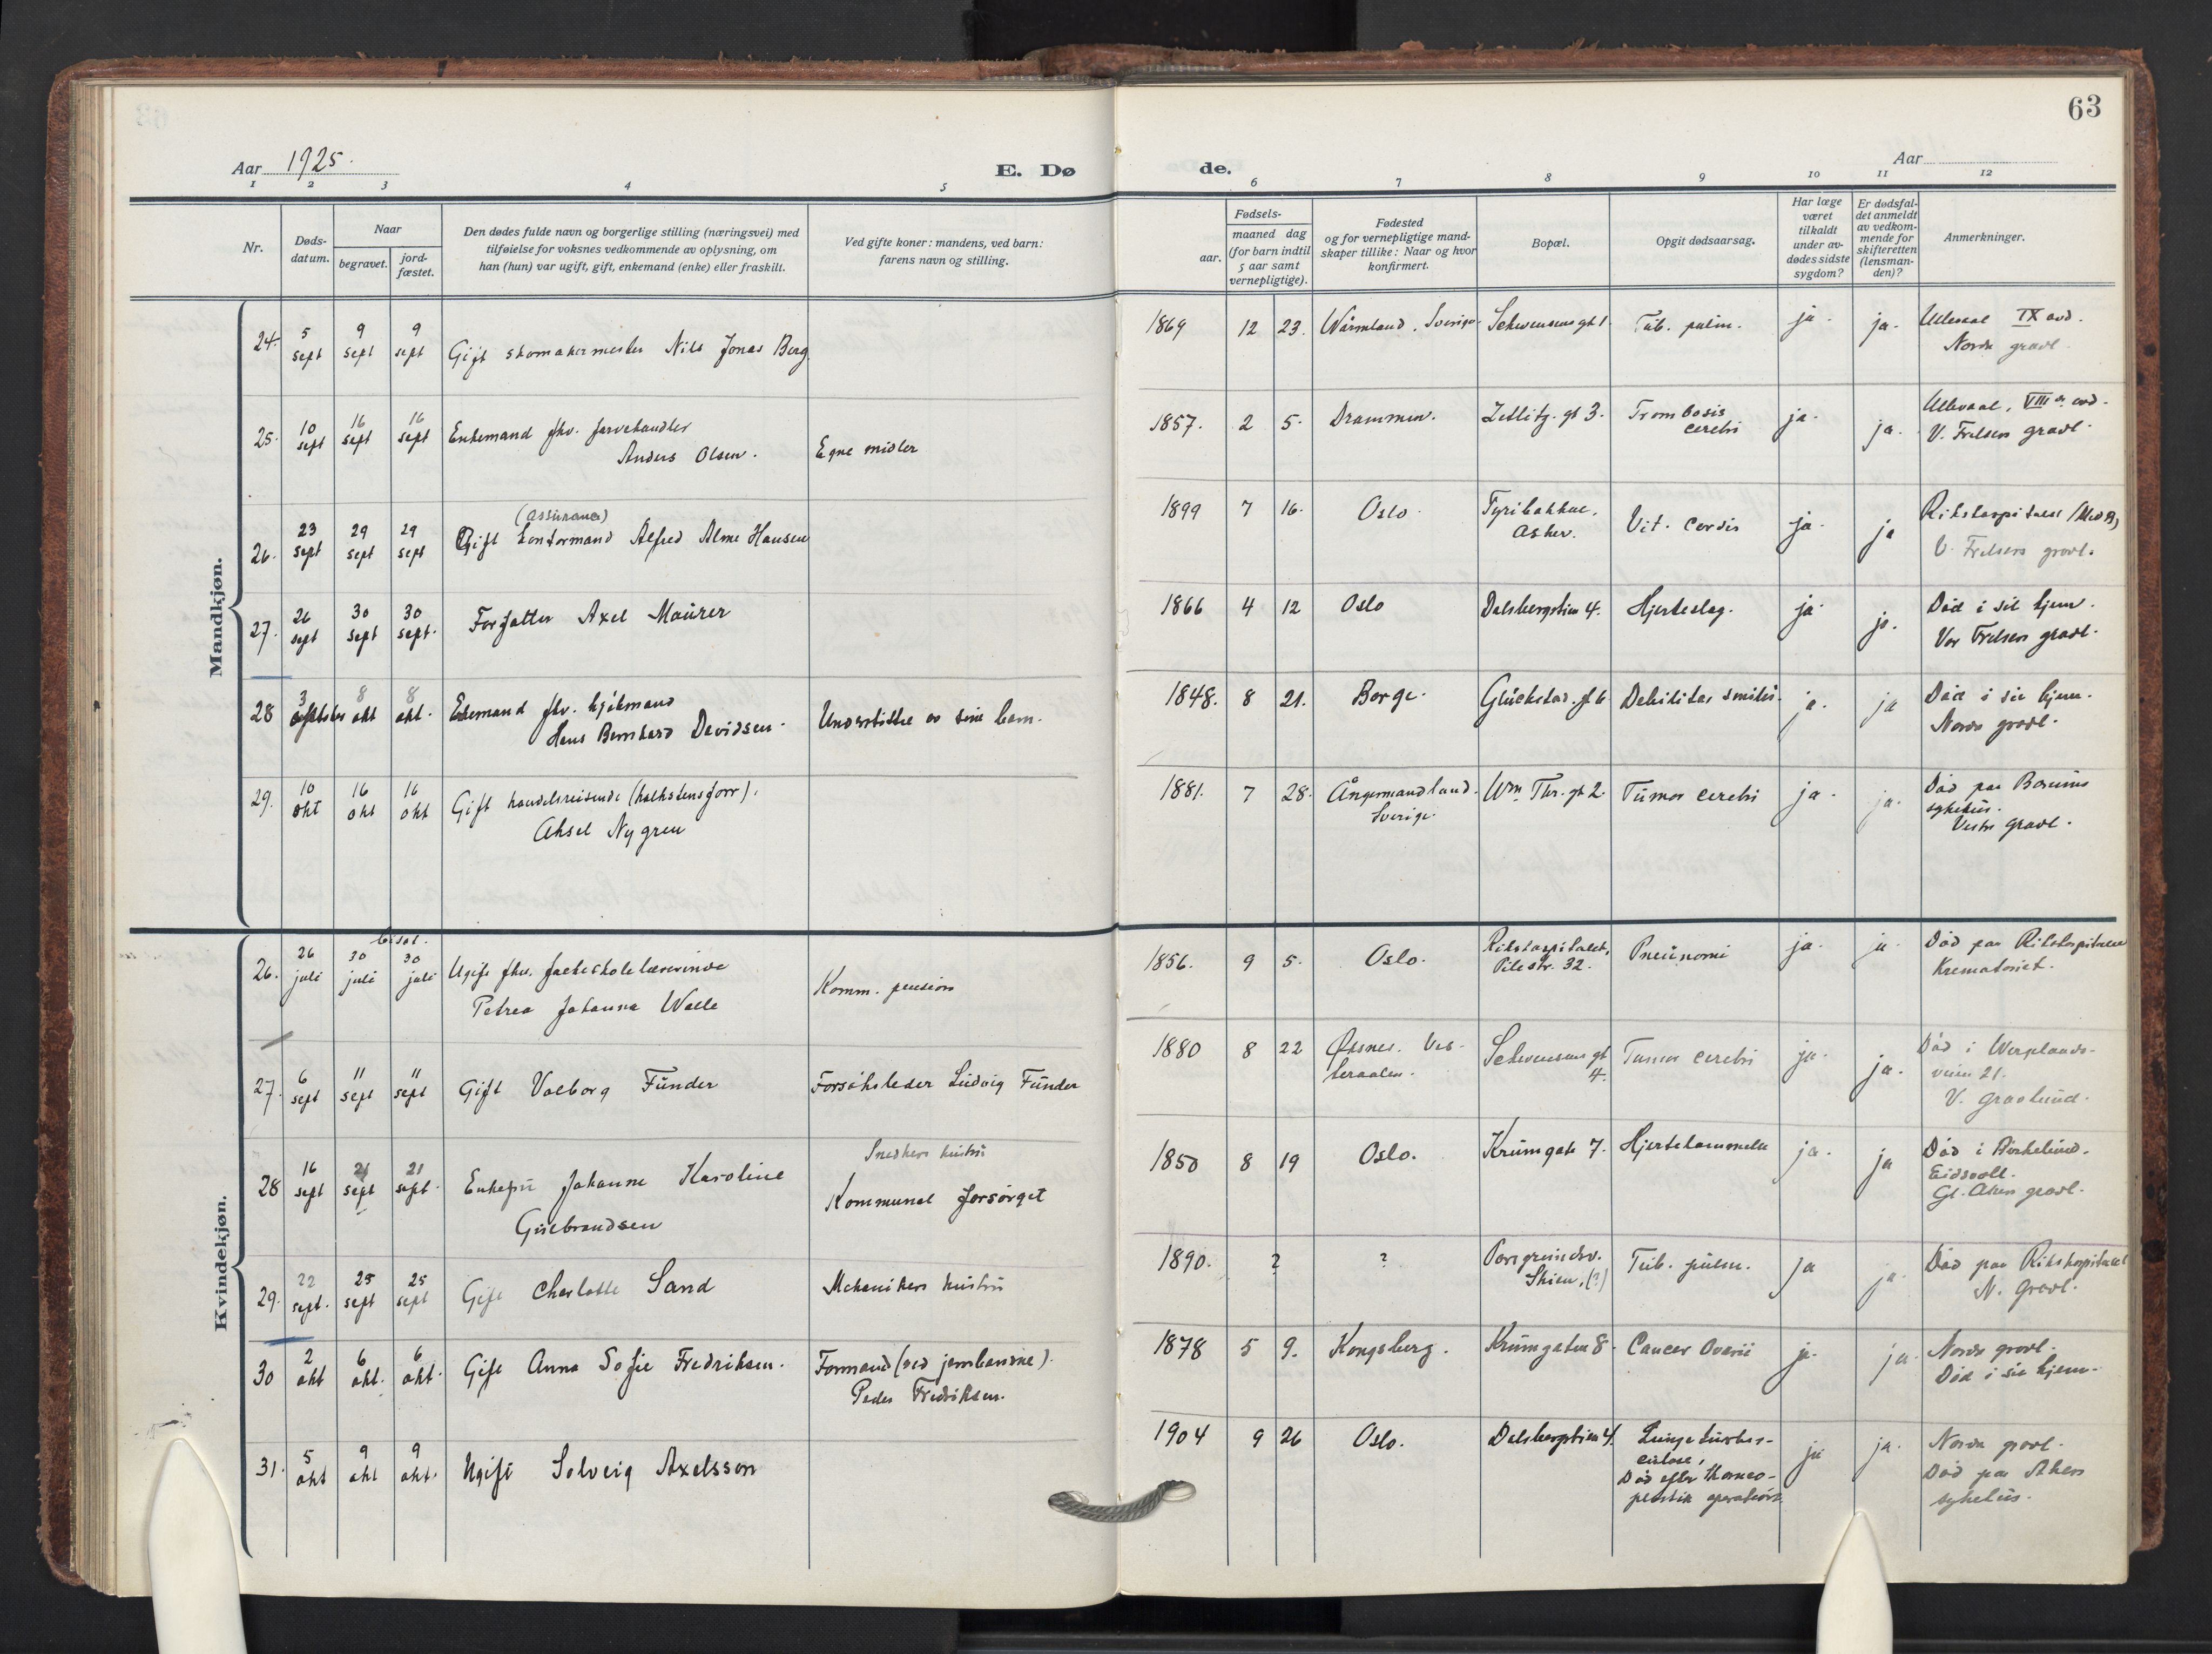 63
Aar 1925.
E. Dø
de.
Aar
1 2 3 4 5 6 7 8 9 10 11 12
Nr.
Døds-
datum.
Naar
begravet.
jord-
fæstet.
Den dødes fulde navn og borgerlige stilling (næringsvei) med
tilføielse for voksnes vedkommende av oplysning, om
han (hun) var ugift, gift, enkemand (enke) eller fraskilt.
Ved gifte koner: mandens, ved barn:
farens navn og stilling.
Fødsels-
aar.
maaned dag
(for barn indtil
5 aar samt
vernepligtige).
Fødested
og for vernepligtige mand-
skaper tillike: Naar og hvor
konfirmert.
Bopæl.
Opgit dødsaarsag.
Har læge
været
tilkaldt
under av-
dødes sidste
sygdom?
Er dødsfal-
det anmeldt
av vedkom-
mende for
skifteretten
(lensman-
den)?
Anmerkninger.
Mandkjøn.
24. 5 sept 9 sept 9 sept Gift skomakermester Nils Jonas Berg 1869 12 23. Wärmland. Sverige. Schwensens gt 1. Tub. pulm. ja. ja. Ullevaal IX avd.
Nordre gravl.
25. 10 sept 16 sept 16 sept Enkemand fhv. farvehandler
Anders Olsen. Egne midler 1857. 2 5. Drammen. Zetlitz. gt 3. Trombosis
cerebri ja. ja. Ullevaal, VIII avd.
V. Frelsers gravl.
26. 23 sept 29 sept 29 sept (assurance)
Gift kontormand Alfred Alme Hansen 1899 7 16. Oslo. Tyribakken,
Asker. Vit. Cordis ja. ja Rikshospitalet (Med B)
V. Frelsers gravl.
27. 26 sept 30 sept 30 sept. Forfatter Axel Maurer 1866 4 12 Oslo Dalsbergstien 4. Hjerteslag. ja. ja. Død i sit hjem.
Vor Frelsers gravl.
28 3 oktober 8 okt 8 okt. Enkemand fhv. kjøkmand
Hans Bernhard Davidsen. Understøttet av sine barn. 1848. 8 21. Borge. Glückstad. gt 6 Debilitas senilis. ja. ja Død i sit hjem.
Nordre gravl.
29. 10 okt 16 okt 16 okt Gift handelsreisende (kalkstensforr).
Aksel Nygren 1881. 7 28. Ångermandland.
Sverige. Wm Thr. gt 2. Tumor cerebri ja. ja. Død paa Bærums
sykehus.
Vestre gravl.
Kvindekjøn.
26. 26 juli 30 juli 30 juli bisat. Ugift fhv. folkeskolelærerinde
Petrea Johanna Walle Komm. pension 1856. 9 5. Oslo. Rikshospitalet,
Pilestr. 32. Pneumoni ja. ja Død paa Rikshospitalet
Krematoriet.
27. 6 sept 11 sept 11 sept Gift Valborg Funder Forsøksleder Ludvig Funder 1880 8 22 Øksnes. Ves-
teraalen. Schwensens gt
4. Tumor cerebri ja. ja. Død i Wergelands-
veien 21.
V. Gravlund.
28 16 sept 21 sept 21 sept. Enkefru Johanne Karoline
Gulbrandsen Snedkers hustru
Kommunal forsørget 1850 8 19 Oslo. Krumgate 7. Hjertelammelse ja. ja Død i Birkelund.
Eidsvoll.
Gl. Akers gravl.
29. 22 sept. 25 sept 25 sept Gift Charlotte Sand Mekanikers hustru 1890. ? ? Porsgrundsv.
Skien. (?) Tub. pulm. ja ja Død paa Rikshospitalet
N. Gravl.
30 2 okt 6 okt. 6 okt. Gift Anna Sofie Fredriksen. Formand (ved jernbanene).
Peder Fredriksen. 1878 5 9. Kongsberg. Krumgaten 8. Cancer Ovarii ja. ja. Nordre gravl.
Død i sit hjem.
31. 5 okt 9 okt 9 okt. Ugift Solveig Axelsson 1904 9 26 Oslo. Dalsbergstien 4. Lungetuber-
culose,
Død efter thoraco-
plastik operation ja ja. Nordre gravl.
Død paa Akers
sykehus.